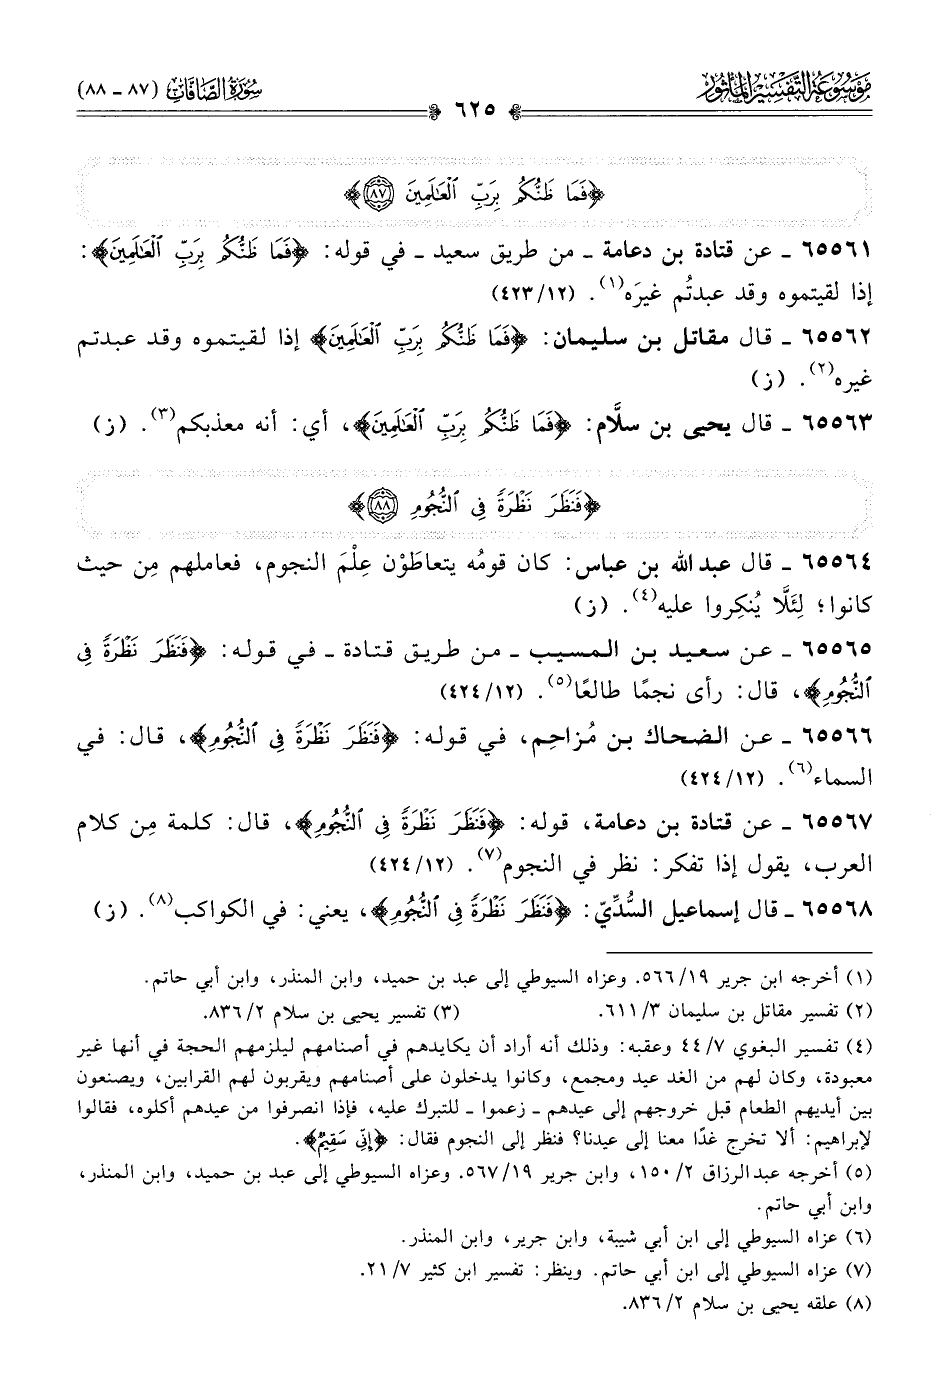 مَوْسُوعَةُ التَّفْسِيرِ المَأْثُورِ
سُورَةُ الصَّافَّاتِ (٨٧ - ٨٨)
٦٢٥
﴿فَمَا ظَنُّكُم بِرَبِّ ٱلْعَـٰلَمِينَ ٨٧﴾
٦٥٥٦١ - عن قتادة بن دعامة - من طريق سعيد - في قوله: ﴿فَمَا ظَنُّكُم بِرَبِّ ٱلْعَـٰلَمِينَ﴾:
إذا لقيتموه وقد عبدتُم غيرَه(١). (١٢/٤٢٣)
٦٥٥٦٢ - قال مقاتل بن سليمان: ﴿فَمَا ظَنُّكُم بِرَبِّ ٱلْعَـٰلَمِينَ﴾ إذا لقيتموه وقد عبدتم
غيره(٢). (ز)
٦٥٥٦٣ - قال يحيى بن سلَّام: ﴿فَمَا ظَنُّكُم بِرَبِّ ٱلْعَـٰلَمِينَ﴾، أي: أنه معذبكم(٣). (ز)
﴿فَنَظَرَ نَظْرَةً فِى ٱلنُّجُومِ ٨٨﴾
٦٥٥٦٤ - قال عبد الله بن عباس: كان قومُه يتعاطَوْن عِلْمَ النجوم، فعاملهم مِن حيث
كانوا؛ لِئَلَّا يُنكِروا عليه(٤). (ز)
٦٥٥٦٥ - عن سعيد بن المسيب - من طريق قتادة - في قوله: ﴿فَنَظَرَ نَظْرَةً فِى
ٱلنُّجُومِ﴾، قال: رأى نجمًا طالعًا(٥). (١٢/٤٢٤)
٦٥٥٦٦ - عن الضحاك بن مُزاحِم، في قوله: ﴿فَنَظَرَ نَظْرَةً فِى ٱلنُّجُومِ﴾، قال: في
السماء(٦). (١٢/٤٢٤)
٦٥٥٦٧ - عن قتادة بن دعامة، قوله: ﴿فَنَظَرَ نَظْرَةً فِى ٱلنُّجُومِ﴾، قال: كلمة مِن كلام
العرب، يقول إذا تفكر: نظر في النجوم(٧). (١٢/٤٢٤)
٦٥٥٦٨ - قال إسماعيل السُّدِّيّ: ﴿فَنَظَرَ نَظْرَةً فِى ٱلنُّجُومِ﴾، يعني: في الكواكب(٨). (ز)
(١) أخرجه ابن جرير ١٩/٥٦٦. وعزاه السيوطي إلى عبد بن حميد، وابن المنذر، وابن أبي حاتم.
(٢) تفسير مقاتل بن سليمان ٣/٦١١. (٣) تفسير يحيى بن سلام ٢/٨٣٦.
(٤) تفسير البغوي ٧/٤٤ وعقبه: وذلك أنه أراد أن يكايدهم في أصنامهم ليلزمهم الحجة في أنها غير
معبودة، وكان لهم من الغد عيد ومجمع، وكانوا يدخلون على أصنامهم ويقربون لهم القرابين، ويصنعون
بين أيديهم الطعام قبل خروجهم إلى عيدهم - زعموا - للتبرك عليه، فإذا انصرفوا من عيدهم أكلوه، فقالوا
لإبراهيم: ألا تخرج غدًا معنا إلى عيدنا؟ فنظر إلى النجوم فقال: ﴿إِنِّى سَقِيمٌ﴾.
(٥) أخرجه عبد الرزاق ٢/١٥٠، وابن جرير ١٩/٥٦٧. وعزاه السيوطي إلى عبد بن حميد، وابن المنذر،
وابن أبي حاتم.
(٦) عزاه السيوطي إلى ابن أبي شيبة، وابن جرير، وابن المنذر.
(٧) عزاه السيوطي إلى ابن أبي حاتم. وينظر: تفسير ابن كثير ٧/٢١.
(٨) علقه يحيى بن سلام ٢/٨٣٦.